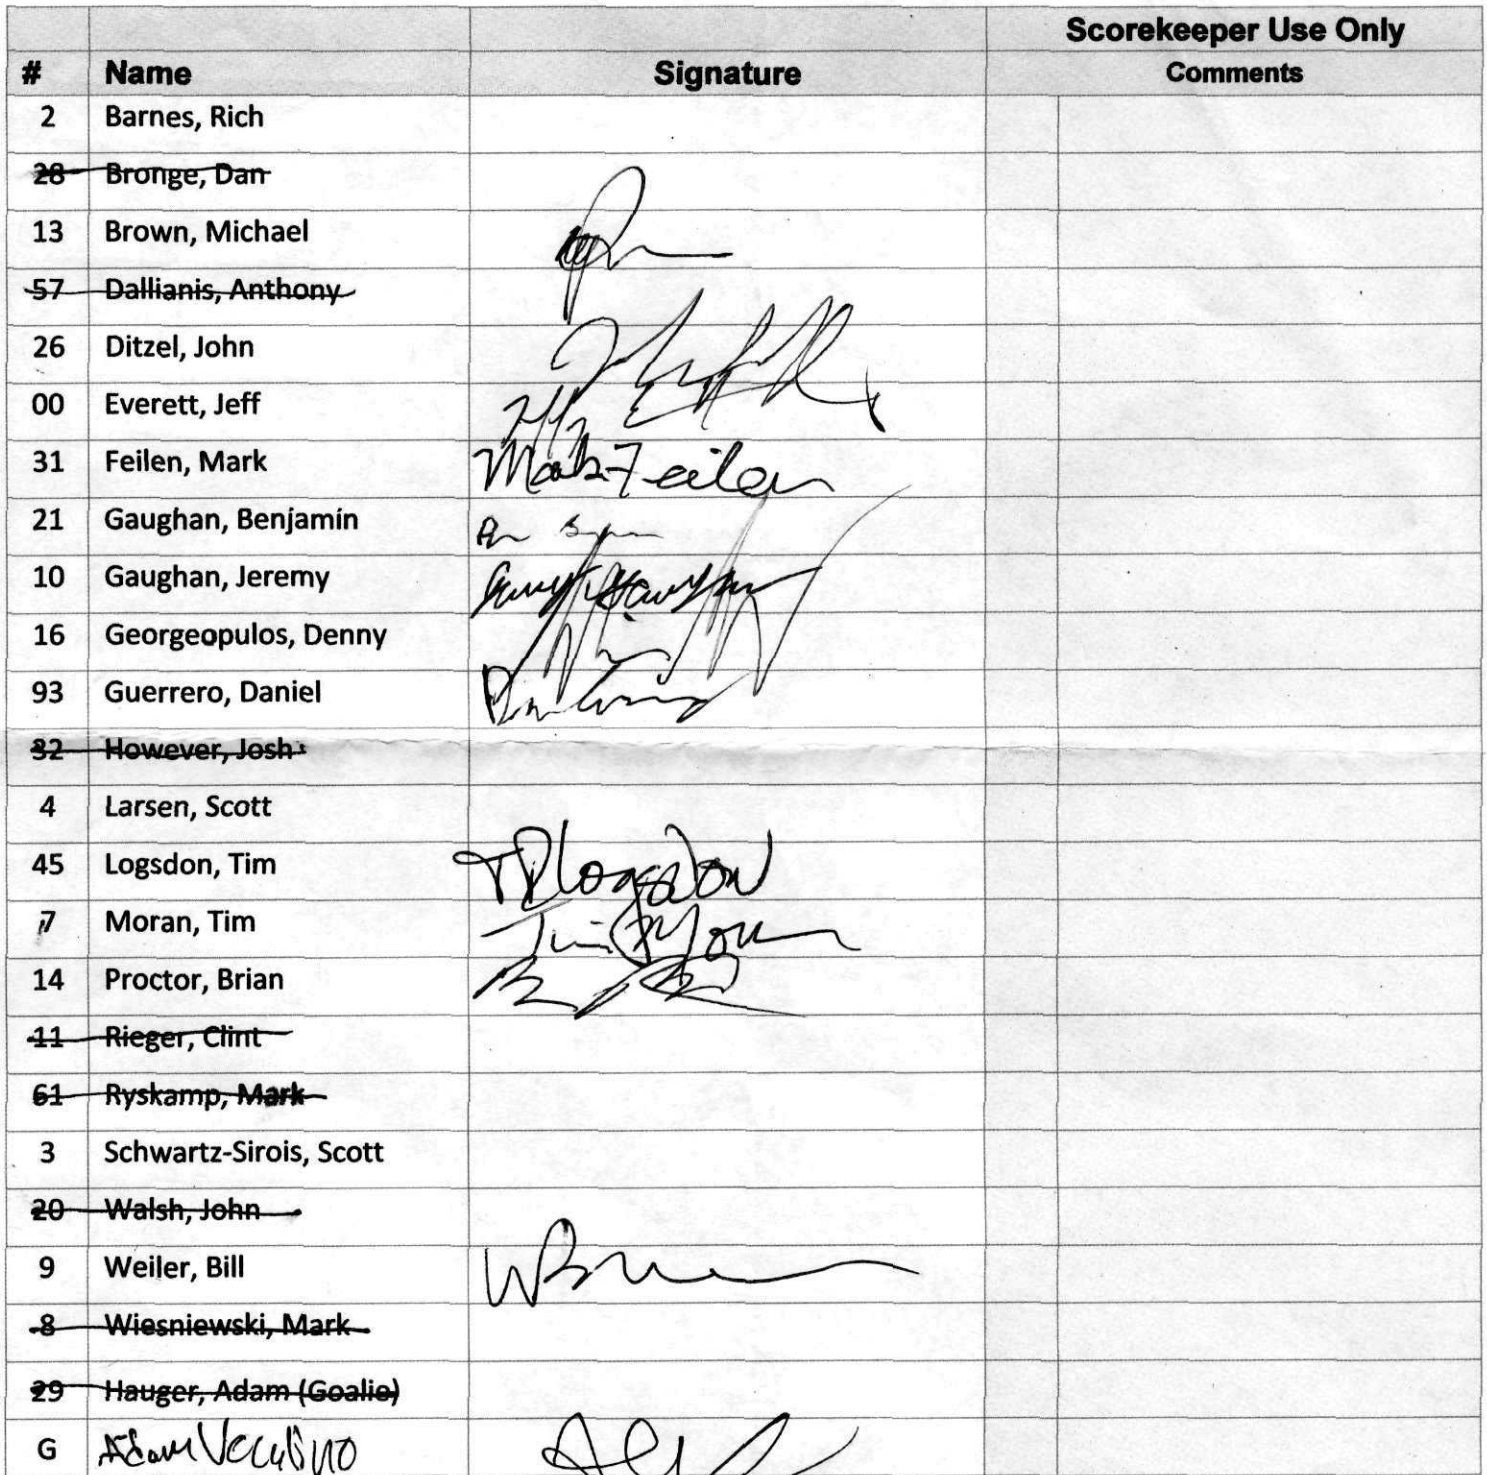 Scorekeeper Use Only
# Name Signature Comments
2 Barnes, Rich
28 Bronge, Dan
13 Brown, Michael
57 Dallianis, Anthony
26 Ditzel, John
00 Everett, Jeff
31 Feilen, Mark Mark Feilen
21 Gaughan, Benjamin
10 Gaughan, Jeremy
16 Georgeopulos, Denny
93 Guerrero, Daniel
32 However, Josh
4 Larsen, Scott
45 Logsdon, Tim TPLogsdon
7 Moran, Tim Tim Moran
14 Proctor, Brian
11 Rieger, Clint
61 Ryskamp, Mark
3 Schwartz-Sirois, Scott
20 Walsh, John
9 Weiler, Bill
8 Wiesniewski, Mark
29 Hauger, Adam (Goalie)
G Adam